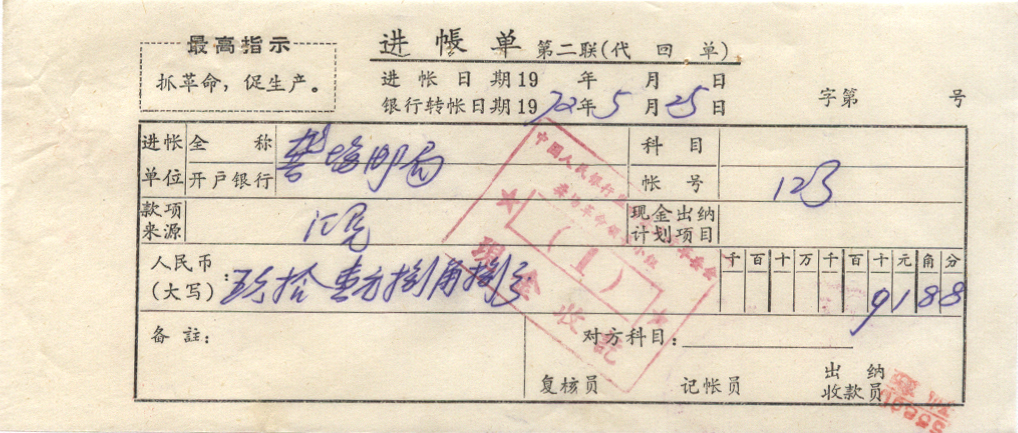 最高指示
抓革命，促生产。
进帐单 第二联(代回单)
进帐日期19 年 月 日
银行转帐日期1972年5月25日
字第 号
进帐单位 全称 邮局 科目
开户银行 帐号 123
款项来源 汇兑 现金出纳计划项目
人民币(大写): 玖拾壹元捌角捌分 千百十万千百十元角分 9188
备註: 对方科目:
复核员 记帐员 出纳收款员
中国人民银行
革命领导小组
(1)
现金收讫